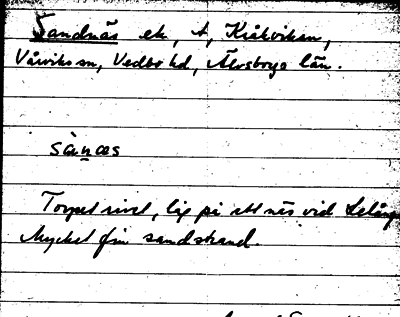 Sandnäs ek, t, Kråkviken,
Vårviks sn, Vedbo hd, Älvsborgs län.
sànæs
Torpet rivet, lig på ett näs vid Lelång
Mycket fin sandstrand.